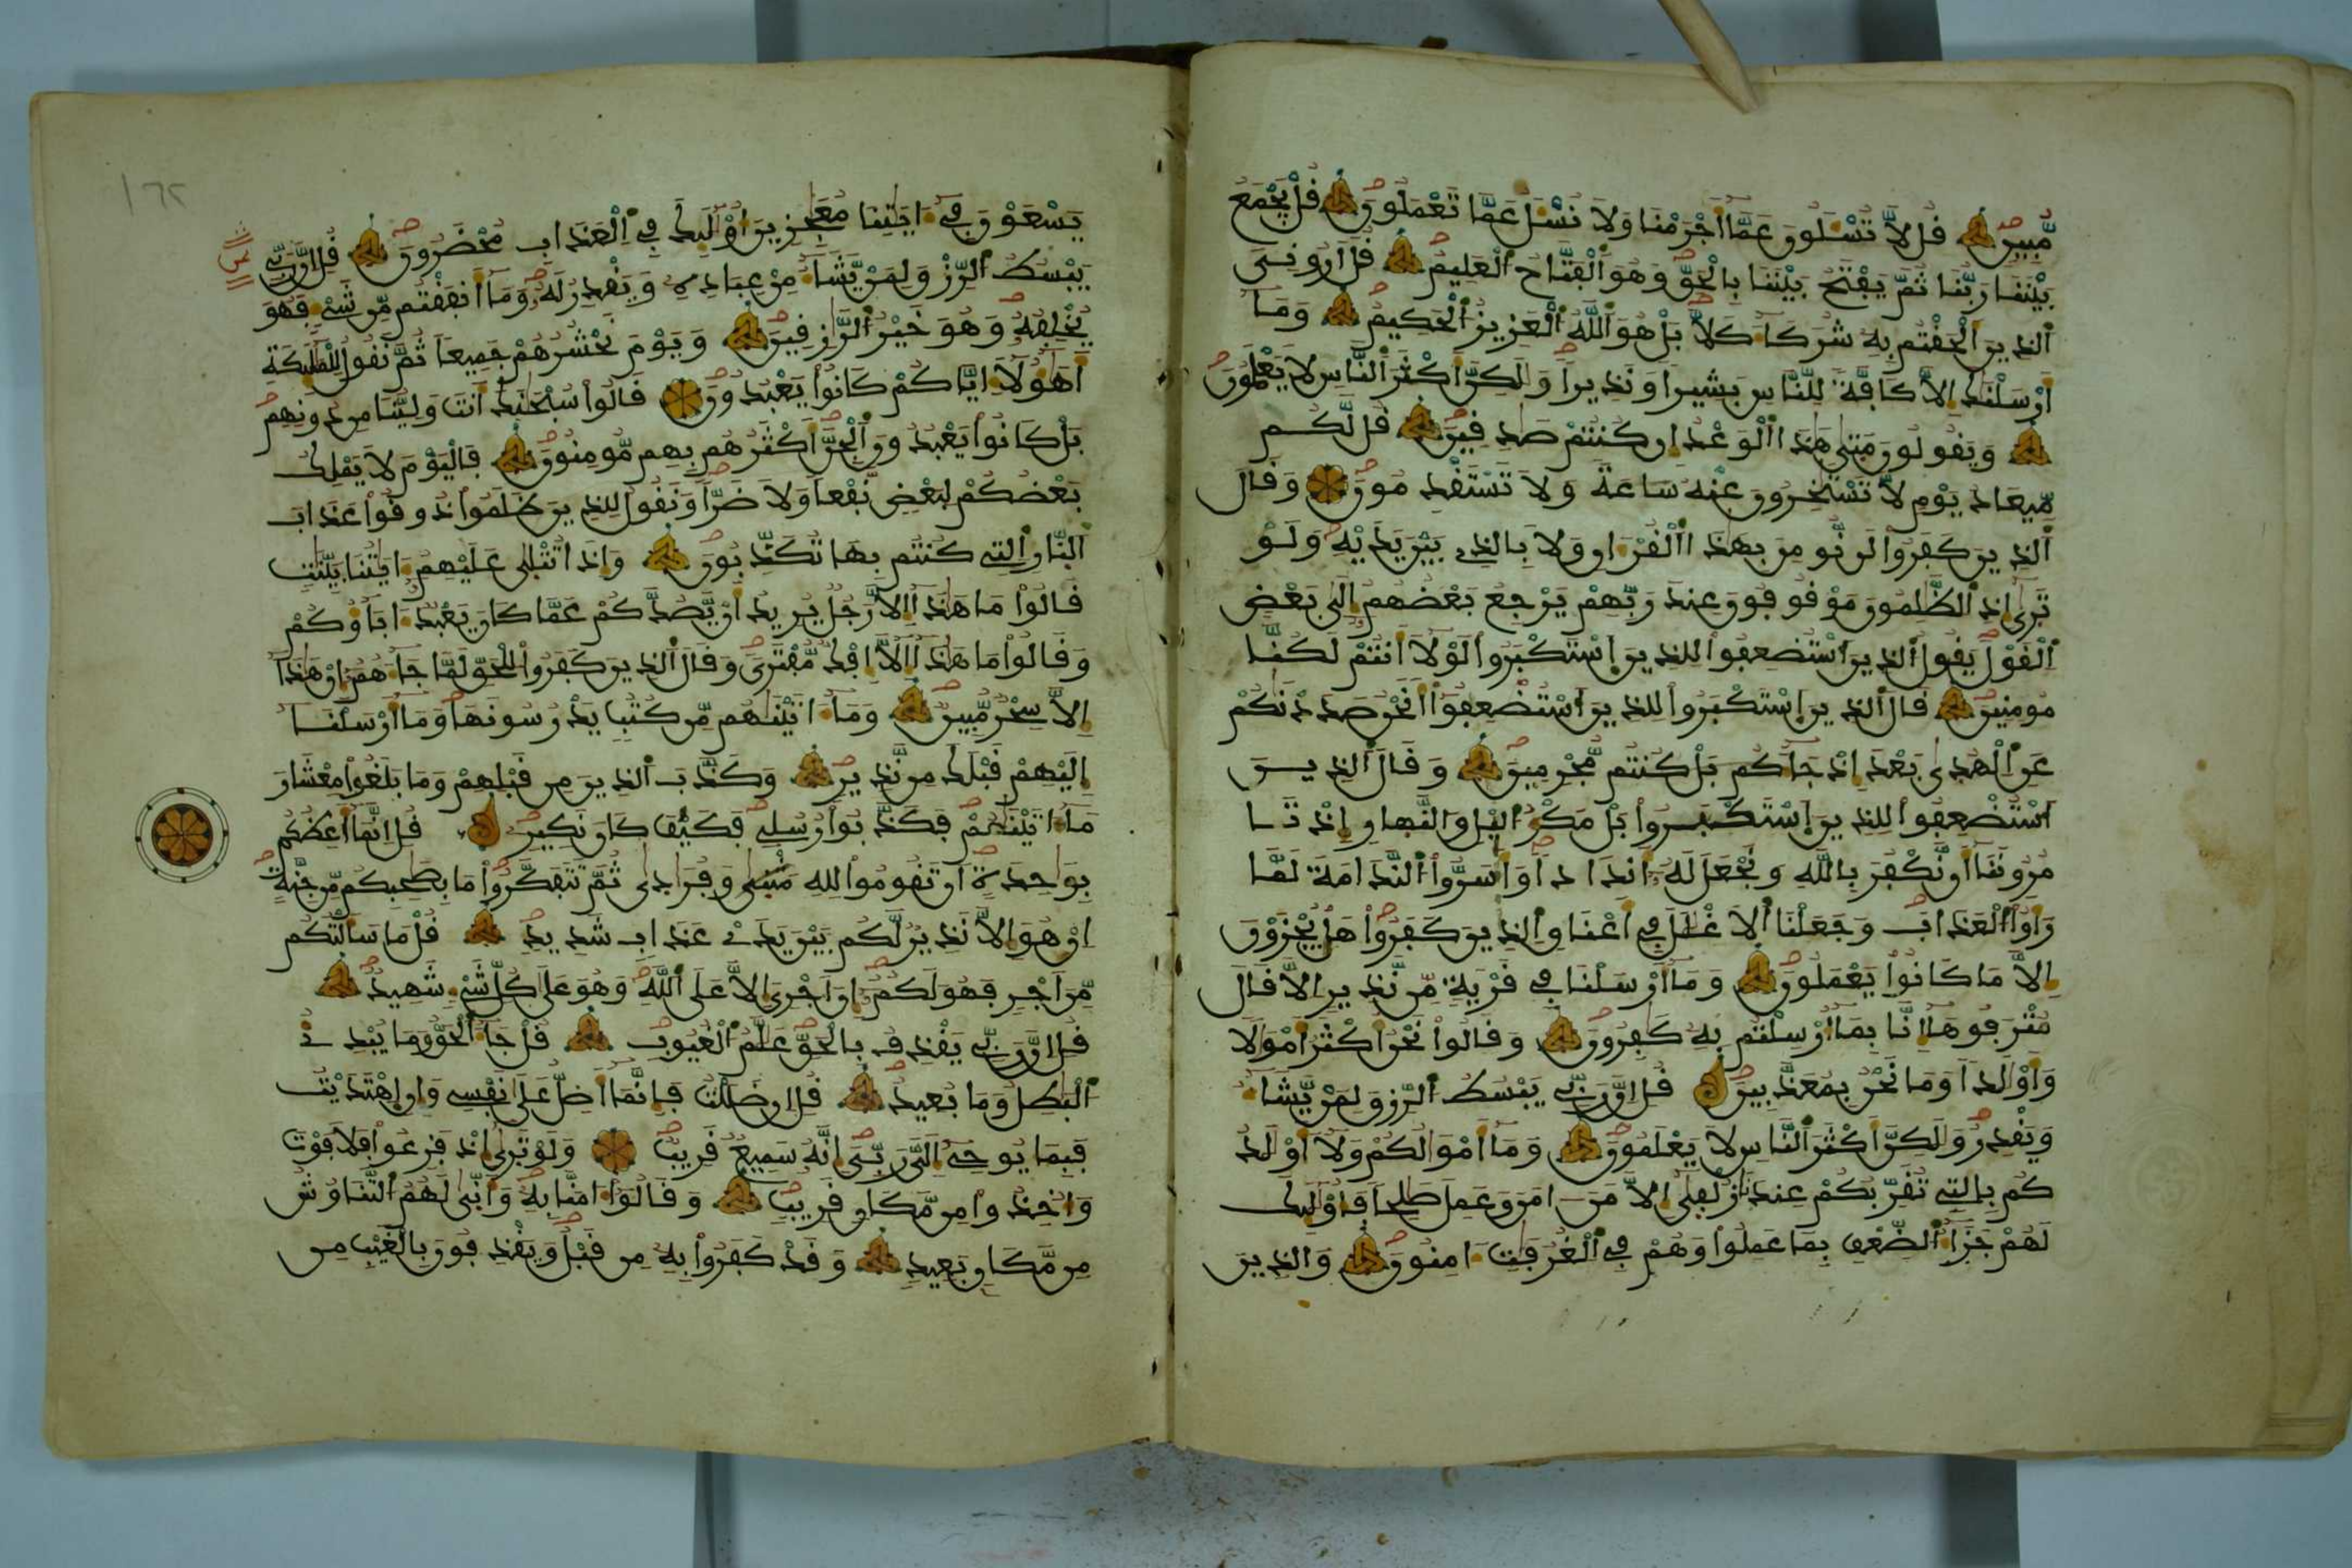 مُّبِينٍ قُل لَّا تُسْـَٔلُونَ عَمَّآ أَجْرَمْنَا وَلَا نُسْـَٔلُ عَمَّا تَعْمَلُونَ قُلْ يَجْمَعُ
بَيْنَنَا رَبُّنَا ثُمَّ يَفْتَحُ بَيْنَنَا بِالْحَقِّ وَهُوَ اَ۬لْفَتَّاحُ اُ۬لْعَلِيمُ قُلَ اَرُونِيَ
اَ۬لذِينَ أَلْحَقْتُم بِهِۦ شُرَكَآءَ كَلَّا بَلْ هُوَ اَ۬للَّهُ اُ۬لْعَزِيزُ اُ۬لْحَكِيمُ وَمَآ
أَرْسَلْنَٰكَ إِلَّا كَآفَّةً لِّلنَّاسِ بَشِيراً وَنَذِيراً وَلَٰكِنَّ أَكْثَرَ اَ۬لنَّاسِ لَا يَعْلَمُونَ
وَيَقُولُونَ مَتَىٰ هَٰذَا اَ۬لْوَعْدُ إِن كُنتُمْ صَٰدِقِينَ قُل لَّكُم
مِّيعَادُ يَوْمٍ لَّا تَسْتَـْٔخِرُونَ عَنْهُ سَاعَةً وَلَا تَسْتَقْدِمُونَ وَقَالَ
اَ۬لذِينَ كَفَرُوا۟ لَن نُّومِنَ بِهَٰذَا اَ۬لْقُرْءَانِ وَلَا بِالذِے بَيْنَ يَدَيْهِ وَلَوْ
تَرَىٰٓ إِذِ اِ۬لظَّٰلِمُونَ مَوْقُوفُونَ عِندَ رَبِّهِمْ يَرْجِعُ بَعْضُهُمُۥٓ إِلَىٰ بَعْضٍ
اِ۬لْقَوْلَ يَقُولُ اُ۬لذِينَ اَ۟سْتُضْعِفُوا۟ لِلذِينَ اَ۪سْتَكْبَرُوا۟ لَوْلَآ أَنتُمْ لَكُنَّا
مُومِنِينَ قَالَ اَ۬لذِينَ اَ۪سْتَكْبَرُوا۟ لِلذِينَ اَ۟سْتُضْعِفُوٓا۟ أَنَحْنُ صَدَدْنَٰكُمْ
عَنِ اِ۬لْهُدَىٰ بَعْدَ إِذْ جَآءَكُم بَلْ كُنتُم مُّجْرِمِينَ وَقَالَ اَ۬لذِينَ
اَ۟سْتُضْعِفُوا۟ لِلذِينَ اَ۪سْتَكْبَرُوا۟ بَلْ مَكْرُ اُ۬ليْلِ وَالنَّهَارِ إِذْ تَا
مُرُونَنَآ أَن نَّكْفُرَ بِاللَّهِ وَنَجْعَلَ لَهُۥٓ أَندَاداً وَأَسَرُّوا۟ اُ۬لنَّدَامَةَ لَمَّا
رَأَوُا۟ اُ۬لْعَذَابَ وَجَعَلْنَا اَ۬لَاغْلَٰلَ فِے أَعْنَاقِ اِ۬لذِينَ كَفَرُوا۟ هَلْ يُجْزَوْنَ
إِلَّا مَا كَانُوا۟ يَعْمَلُونَ وَمَآ أَرْسَلْنَا فِے قَرْيَةٍ مِّن نَّذِيرٍ اِلَّا قَالَ
مُتْرَفُوهَآ إِنَّا بِمَآ أُرْسِلْتُم بِهِۦ كَٰفِرُونَ وَقَالُوا۟ نَحْنُ أَكْثَرُ أَمْوَٰلاً
وَأَوْلَٰداً وَمَا نَحْنُ بِمُعَذَّبِينَ قُلِ اِنَّ رَبِّے يَبْسُطُ اُ۬لرِّزْقَ لِمَنْ يَّشَآءُ
وَيَقْدِرُ وَلَٰكِنَّ أَكْثَرَ اَ۬لنَّاسِ لَا يَعْلَمُونَ وَمَآ أَمْوَٰلُكُمْ وَلَآ أَوْلَٰدُ
كُم بِالتِے تُقَرِّبُكُمْ عِندَنَا زُلْفَىٰٓ إِلَّا مَنَ اٰمَنَ وَعَمِلَ صَٰلِحاً فَأُو۟لَٰٓئِكَ
لَهُمْ جَزَآءُ اُ۬لضِّعْفِ بِمَا عَمِلُوا۟ وَهُمْ فِے اِ۬لْغُرُفَٰتِ ءَامِنُونَ وَالذِينَ
يَسْعَوْنَ فِےٓ ءَايَٰتِنَا مُعَٰجِزِينَ أُو۟لَٰٓئِكَ فِے اِ۬لْعَذَابِ مُحْضَرُونَ قُلِ اِنَّ رَبِّے
يَبْسُطُ اُ۬لرِّزْقَ لِمَنْ يَّشَآءُ مِنْ عِبَادِهِۦ وَيَقْدِرُ لَهُ وَمَآ أَنفَقْتُم مِّن شَےْءٍ فَهُوَ
يُخْلِفُهُۥ وَهُوَ خَيْرُ اُ۬لرَّٰزِقِينَ وَيَوْمَ نَحْشُرُهُمْ جَمِيعاً ثُمَّ نَقُولُ لِلْمَلَٰٓئِكَةِ
أَهَٰٓؤُلَآءِ اِيَّاكُمْ كَانُوا۟ يَعْبُدُونَ قَالُوا۟ سُبْحَٰنَكَ أَنتَ وَلِيُّنَا مِن دُونِهِم
بَلْ كَانُوا۟ يَعْبُدُونَ اَ۬لْجِنَّ أَكْثَرُهُم بِهِم مُّومِنُونَ فَالْيَوْمَ لَا يَمْلِكُ
بَعْضُكُمْ لِبَعْضٍ نَّفْعاً وَلَا ضَرّاً وَنَقُولُ لِلذِينَ ظَلَمُوا۟ ذُوقُوا۟ عَذَابَ
اَ۬لنَّارِ اِ۬لتِے كُنتُم بِهَا تُكَذِّبُونَ وَإِذَا تُتْلَىٰ عَلَيْهِمُۥٓ ءَايَٰتُنَا بَيِّنَٰتٍ
قَالُوا۟ مَا هَٰذَآ إِلَّا رَجُلٌ يُرِيدُ أَنْ يَّصُدَّكُمْ عَمَّا كَانَ يَعْبُدُ ءَابَآؤُكُمْ
وَقَالُوا۟ مَا هَٰذَآ إِلَّآ إِفْكٌ مُّفْتَرًى وَقَالَ اَ۬لذِينَ كَفَرُوا۟ لِلْحَقِّ لَمَّا جَآءَهُمُۥٓ إِنْ هَٰذَآ
إِلَّا سِحْرٌ مُّبِينٌ وَمَآ ءَاتَيْنَٰهُم مِّن كُتُبٍ يَدْرُسُونَهَا وَمَآ أَرْسَلْنَا
إِلَيْهِمْ قَبْلَكَ مِن نَّذِيرٍ وَكَذَّبَ اَ۬لذِينَ مِن قَبْلِهِمْ وَمَا بَلَغُوا۟ مِعْشَارَ
مَآ ءَاتَيْنَٰهُمْ فَكَذَّبُوا۟ رُسُلِے فَكَيْفَ كَانَ نَكِيرِ قُلِ اِنَّمَآ أَعِظُكُم
بِوَٰحِدَةٍ أَن تَقُومُوا۟ لِلهِ مَثْنَىٰ وَفُرَٰدَىٰ ثُمَّ تَتَفَكَّرُوا۟ مَا بِصَٰحِبِكُم مِّن جِنَّةٍ
اِنْ هُوَ إِلَّا نَذِيرٌ لَّكُم بَيْنَ يَدَےْ عَذَابٍ شَدِيدٍ قُلْ مَا سَأَلْتُكُم
مِّنَ اَجْرٍ فَهُوَ لَكُمُۥٓ إِنَ اَجْرِيَ إِلَّا عَلَى اَ۬للَّهِ وَهُوَ عَلَىٰ كُلِّ شَےْءٍ شَهِيدٌ
قُلِ اِنَّ رَبِّے يَقْذِفُ بِالْحَقِّ عَلَّٰمُ اُ۬لْغُيُوبِ قُلْ جَآءَ اَ۬لْحَقُّ وَمَا يُبْدِئُ
اُ۬لْبَٰطِلُ وَمَا يُعِيدُ قُلِ اِن ضَلَلْتُ فَإِنَّمَآ أَضِلُّ عَلَىٰ نَفْسِے وَإِنِ اِ۪هْتَدَيْتُ
فَبِمَا يُوحِےٓ إِلَيَّ رَبِّيَ إِنَّهُۥ سَمِيعٌ قَرِيبٌ وَلَوْ تَرَىٰٓ إِذْ فَزِعُوا۟ فَلَا فَوْتَ
وَأُخِذُوا۟ مِن مَّكَانٍ قَرِيبٍ وَقَالُوٓا۟ ءَامَنَّا بِهِۦ وَأَنَّىٰ لَهُمُ اُ۬لتَّنَاوُشُ
مِن مَّكَانٍ بَعِيدٍ وَقَدْ كَفَرُوا۟ بِهِۦ مِن قَبْلُ وَيَقْذِفُونَ بِالْغَيْبِ مِن
١٦٢